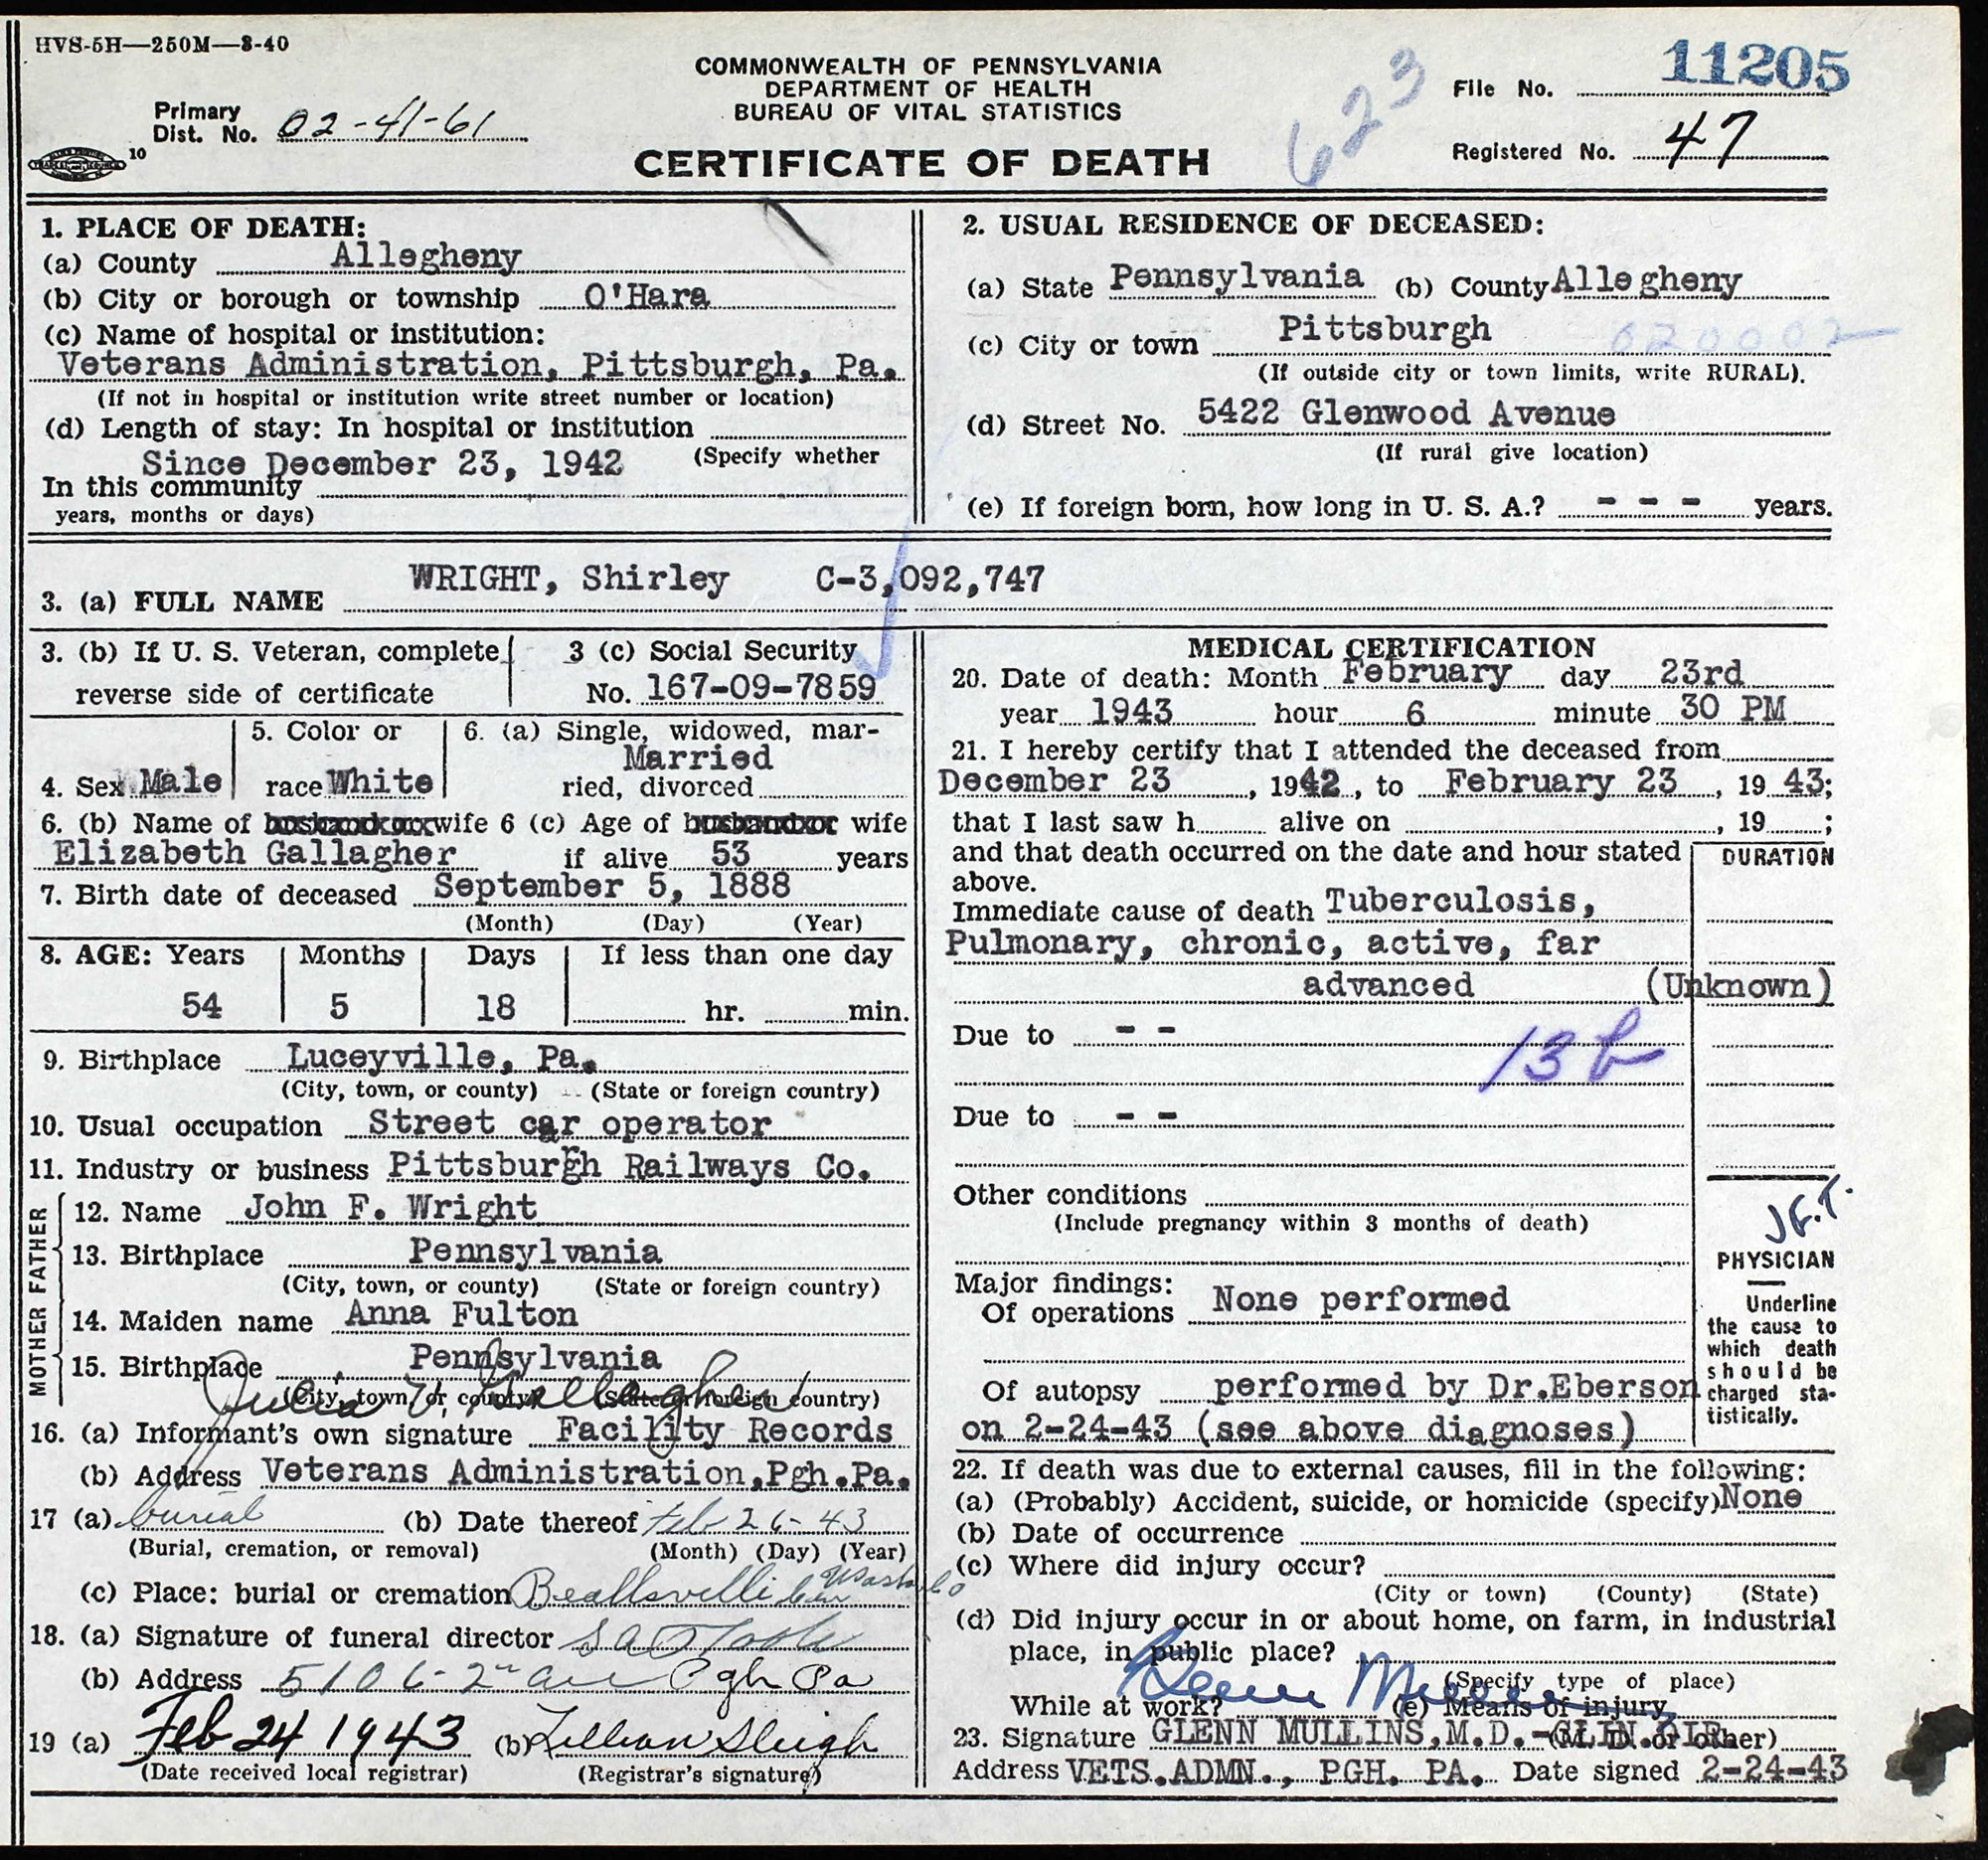 HVS-5H—250M—8-40
COMMONWEALTH OF PENNSYLVANIA
DEPARTMENT OF HEALTH
BUREAU OF VITAL STATISTICS
CERTIFICATE OF DEATH
Primary
Dist. No. 02-41-61
10
623
File No. 11205
Registered No. 47
1. PLACE OF DEATH:
(a) County Allegheny
(b) City or borough or township O'Hara
(c) Name of hospital or institution:
Veterans Administration, Pittsburgh, Pa.
(If not in hospital or institution write street number or location)
(d) Length of stay: In hospital or institution
Since December 23, 1942 (Specify whether
In this community
years, months or days)
2. USUAL RESIDENCE OF DECEASED:
(a) State Pennsylvania (b) County Allegheny
(c) City or town Pittsburgh 020002
(If outside city or town limits, write RURAL).
(d) Street No. 5422 Glenwood Avenue
(If rural give location)
(e) If foreign born, how long in U. S. A.? - - - years.
3. (a) FULL NAME WRIGHT, Shirley C-3,092,747
3. (b) If U. S. Veteran, complete
reverse side of certificate
3 (c) Social Security
No. 167-09-7859
4. Sex Male
5. Color or
race White
6. (a) Single, widowed, mar-
Married
ried, divorced
6. (b) Name of husband or wife 6 (c) Age of husband or wife
Elizabeth Gallagher if alive 53 years
7. Birth date of deceased September 5, 1888
(Month) (Day) (Year)
8. AGE: Years Months Days If less than one day
54 5 18 hr. min.
9. Birthplace Luceyville, Pa.
(City, town, or county) (State or foreign country)
10. Usual occupation Street car operator
11. Industry or business Pittsburgh Railways Co.
FATHER
12. Name John F. Wright
13. Birthplace Pennsylvania
(City, town, or county) (State or foreign country)
MOTHER
14. Maiden name Anna Fulton
15. Birthplace Pennsylvania
(City, town, or county) (State or foreign country)
Julia V. Gallagher
16. (a) Informant's own signature Facility Records
(b) Address Veterans Administration,Pgh.Pa.
17 (a) burial (b) Date thereof Feb 26-43
(Burial, cremation, or removal) (Month) (Day) (Year)
(c) Place: burial or cremation Beallsville Cem Wash Co
18. (a) Signature of funeral director
(b) Address 5106-2nd ave Pgh Pa
19 (a) Feb 24 1943 (b) Lillian Sleigh
(Date received local registrar) (Registrar's signature)
MEDICAL CERTIFICATION
20. Date of death: Month February day 23rd
year 1943 hour 6 minute 30 PM
21. I hereby certify that I attended the deceased from
December 23, 1942, to February 23, 1943;
that I last saw h alive on , 19 ;
and that death occurred on the date and hour stated
above.
DURATION
Immediate cause of death Tuberculosis,
Pulmonary, chronic, active, far
advanced (Unknown)
Due to - -
13 b
Due to - -
Other conditions
(Include pregnancy within 3 months of death)
Major findings:
Of operations None performed
Of autopsy performed by Dr.Eberson
on 2-24-43 (see above diagnoses)
PHYSICIAN
Underline
the cause to
which death
should be
charged sta-
tistically.
22. If death was due to external causes, fill in the following:
(a) (Probably) Accident, suicide, or homicide (specify) None
(b) Date of occurrence
(c) Where did injury occur?
(City or town) (County) (State)
(d) Did injury occur in or about home, on farm, in industrial
place, in public place?
(Specify type of place)
While at work? (e) Means of injury
23. Signature GLENN MULLINS,M.D.-CLIN.DIR. (M. D. or other)
Address VETS.ADMN., PGH. PA. Date signed 2-24-43